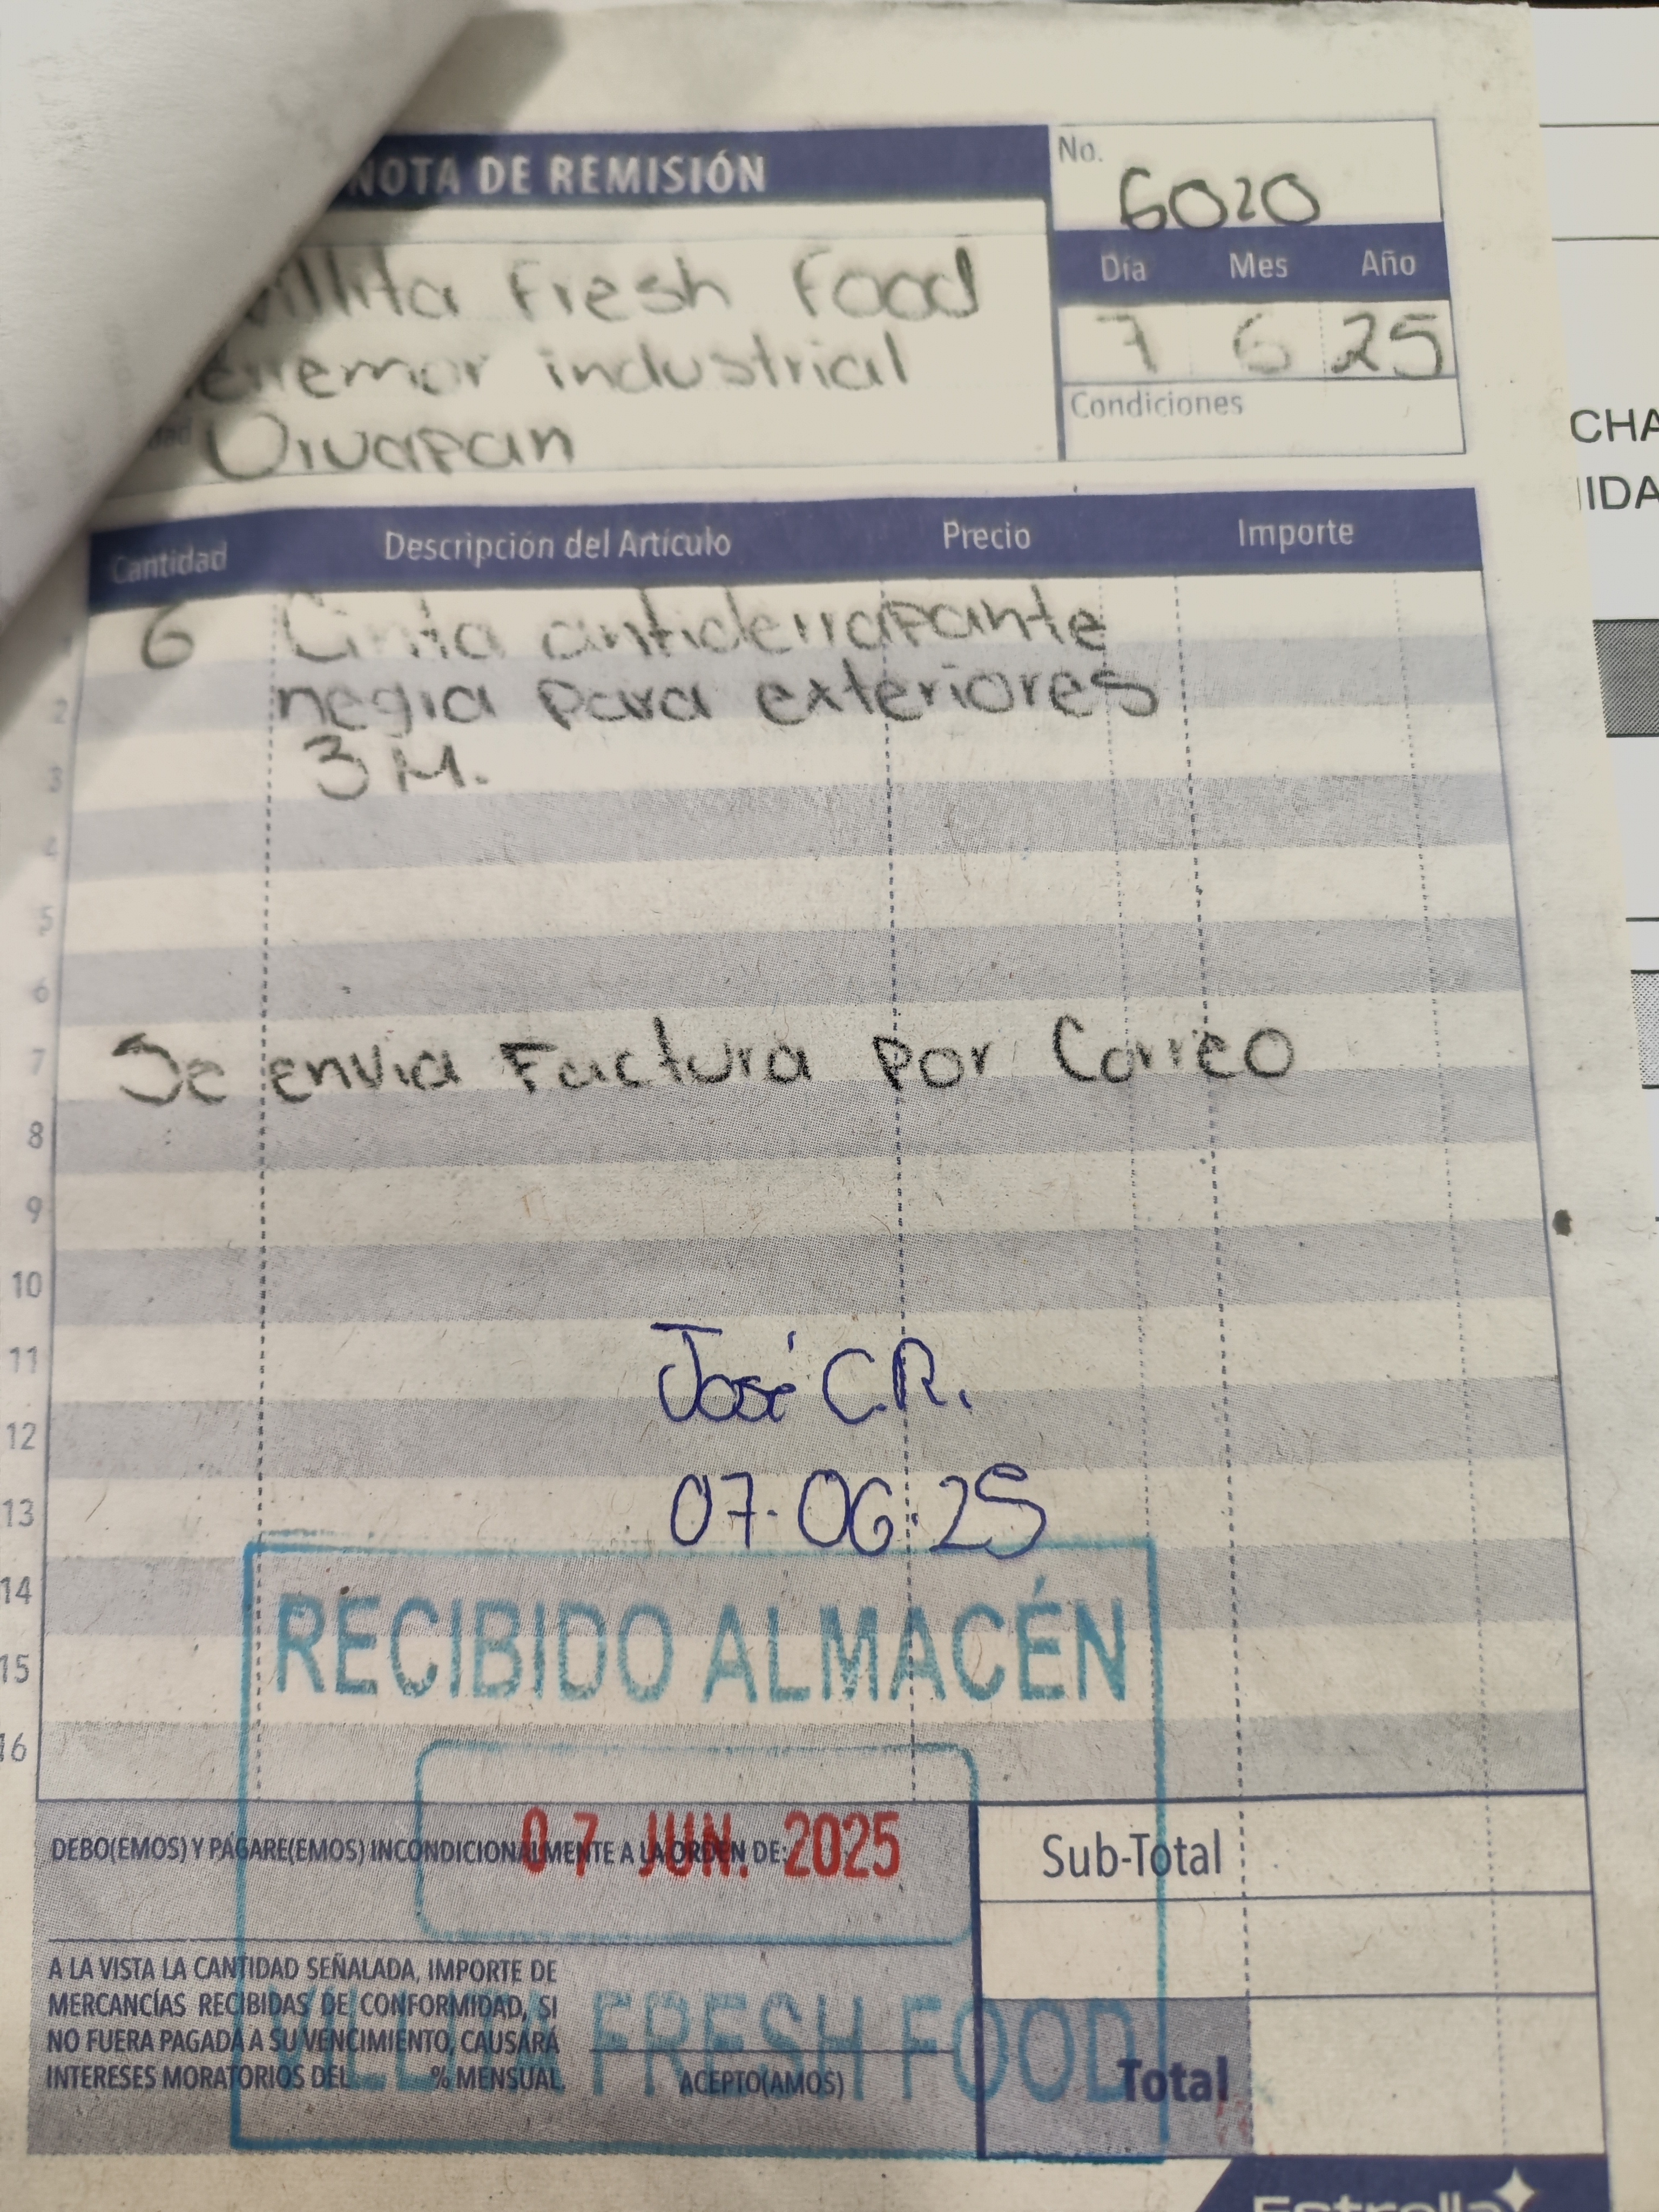 NOTA DE REMISIÓN
No. 6020
Día Mes Año
7 6 25
Condiciones
Villita Fresh Food
industrial
Uruapan
Cantidad Descripción del Artículo Precio Importe
6 Cinta antiderrapante
2 negra para exteriores
3 3M.
4
5
6
7 Se envia Factura por Correo
8
9
10
11 José C.R.
12
13 07.06.25
14
RECIBIDO ALMACÉN
15
16
07 JUN. 2025
DEBO(EMOS) Y PAGARE(EMOS) INCONDICIONALMENTE A LA ORDEN DE:
Sub-Total
A LA VISTA LA CANTIDAD SEÑALADA, IMPORTE DE
MERCANCÍAS RECIBIDAS DE CONFORMIDAD, SI
NO FUERA PAGADA A SU VENCIMIENTO, CAUSARÁ
INTERESES MORATORIOS DEL % MENSUAL.
ACEPTO(AMOS)
FRESH FOOD
Total
Estrella
CHA
IDA